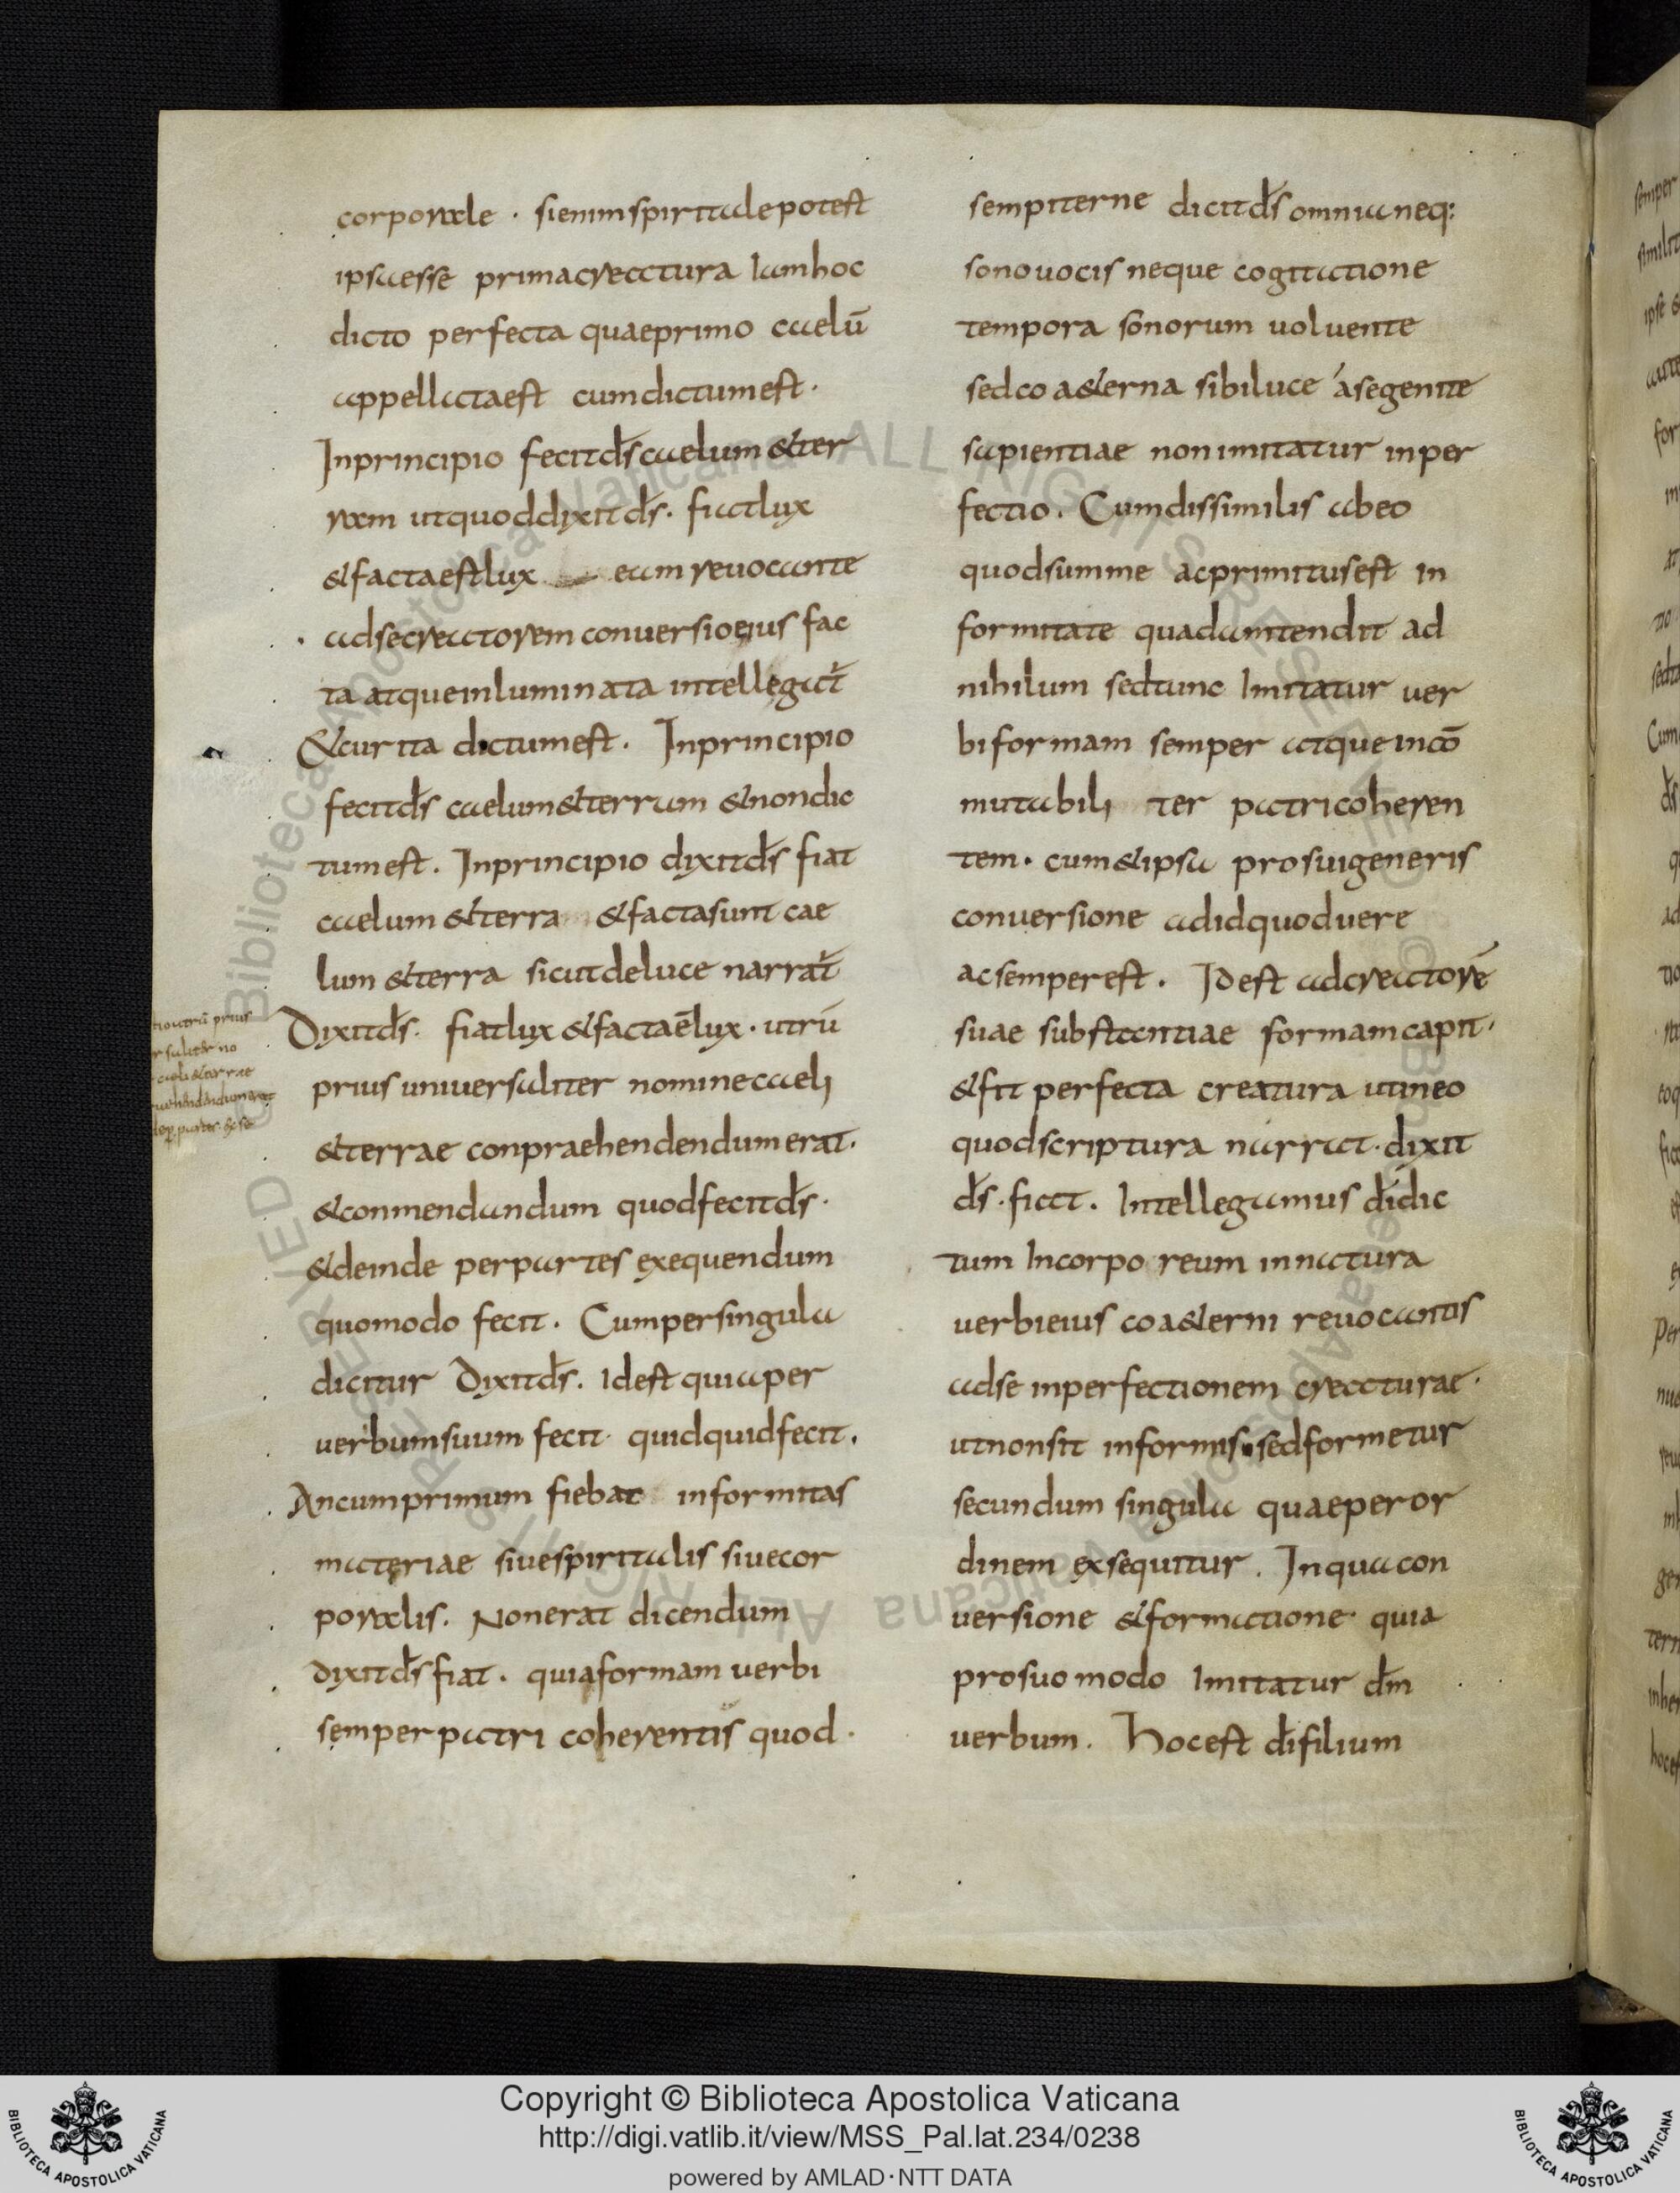 corporale · si enim spiritale potest
ipsa esse prima creatura Iam hoc
dicto perfecta quae primo caelū
appellata est cum dictum est ·
In principio fecit d̄s caelum & ter
ram ut quod dyxit d̄s · fiat lux
& facta est lux eam revocante
ad se creatorem conuersio eius fac
ta atque inluminata intellegat̄
& cur ita dictum est . In principio
fecit d̄s caelum & terram & non dic
tum est . In principio dyxit d̄s fiat
caelum & terra & facta sunt cae
lum & terra sicut de luce narrat̄
Dyxit d̄s . fiat lux & facta ē lux · utrū
prius uniuersaliter nomine caeli
& terrae conpraehendendum erat .
& conmendandum quod fecit d̄s ·
& deinde per partes exequendum
quomodo fecit . Cum per singula
dicitur Dyxit d̄s . Id est quia per
uerbum suum fecit · quidquid fecit .
An cum primum fiebat informitas
materiae siue spiritalis siue cor
poralis . Non erat dicendum
dyxit d̄s fiat . quia formam uerbi
semper patri coherentis quod ·
sempiterne dicit d̄s omnia neq:
sono uocis neque cogitatione
tempora sonorum uoluente
sed coa&erna sibi luce a se genite
sapientiae non imitatur inper
fectio . Cum dissimilis ab eo
quod summe ac primitus est in
formitate quadam tendit ad
nihilum sed tunc Imitatur uer
bi formam semper atque incō
mutabili ter patri coheren
tem · cum & ipsa pro sui generis
conuersione ad id quod uere
ac semper est . Id est ad creatorē
suae substantiae formam capit ·
& fit perfecta creatura ut in eo
quod scriptura narrat · dixit
d̄s · fiat . Intellegamus d̄i dic
tum Incorporeum in natura
uerbi eius coa&erni reuocantis
ad se inperfectionem creaturae ·
ut non sit informis · sed formetur
secundum singula quae per or
dinem exsequitur . In qua con
uersione & formatione · quia
pro suo modo Imitatur d̄m
uerbum . Hoc est d̄i filium
utrū prius
no
caeli & terrae
partes · & se
Copyright © Biblioteca Apostolica Vaticana
http://digi.vatlib.it/view/MSS_Pal.lat.234/0238
powered by AMLAD·NTT DATA
BIBLIOTECA APOSTOLICA VATICANA
BIBLIOTECA APOSTOLICA VATICANA